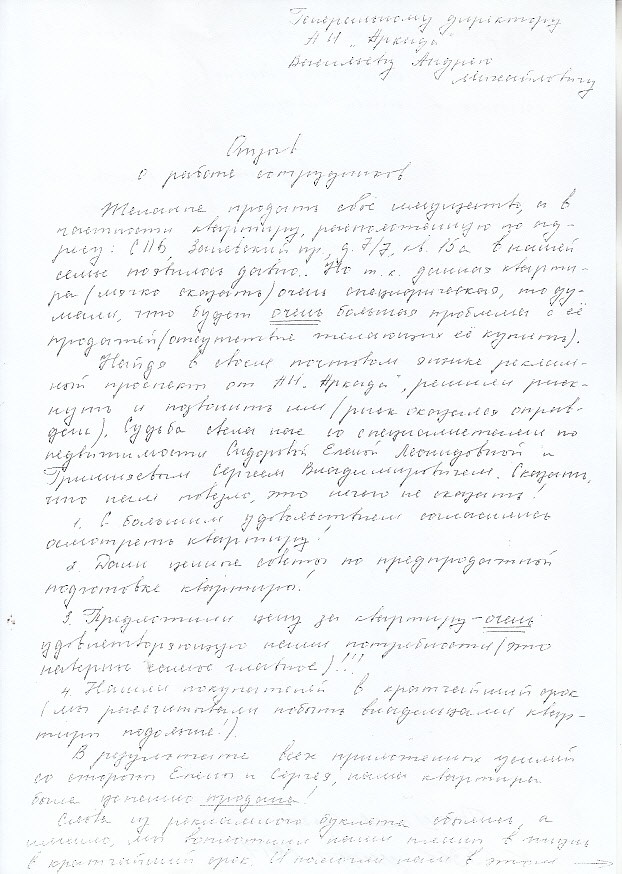 Генеральному директору
АН "Аркада"
Васильеву Андрею
Михайловичу
Отзыв
о работе сотрудников
Желание продать своё имущество, а в
частности квартиру, расположенную по ад-
ресу: СПБ, Заневский пр, д. 7/7, кв. 15а в нашей
семье появилось давно. Но т.к. данная кварти-
ра (мягко сказать) очень специфическая, то ду-
мали, что будет очень большая проблема с её
продажей (отсутствие желающих её купить).
Найдя в своём почтовом ящике реклам-
ный проспект от АН "Аркада", решили риск-
нуть и позвонить им (риск оказался оправ-
дан). Судьба свела нас со специалистами по
недвижимости Сидоровой Еленой Леонидовной и
Сергеем Владимировичем. Сказать,
что нам повезло, это ничего не сказать!
1. С большим удовольствием согласились
осмотреть квартиру!
2. Дали ценные советы по предпродажной
подготовке квартиры!
3. Предложили цену за квартиру - очень
удовлетворяющую наши потребности (это
наверное самое главное)!!!
4. Нашли покупателей в кратчайший срок
(мы рассчитывали побыть владельцами квар-
тиры подольше!).
В результате всех приложенных усилий
со стороны Елены и Сергея, наша квартира
была успешно продана!
Слова из рекламного буклета сбылись, а
именно, мы воплотили наши планы в жизнь
в кратчайший срок. И помогли нам в этом →